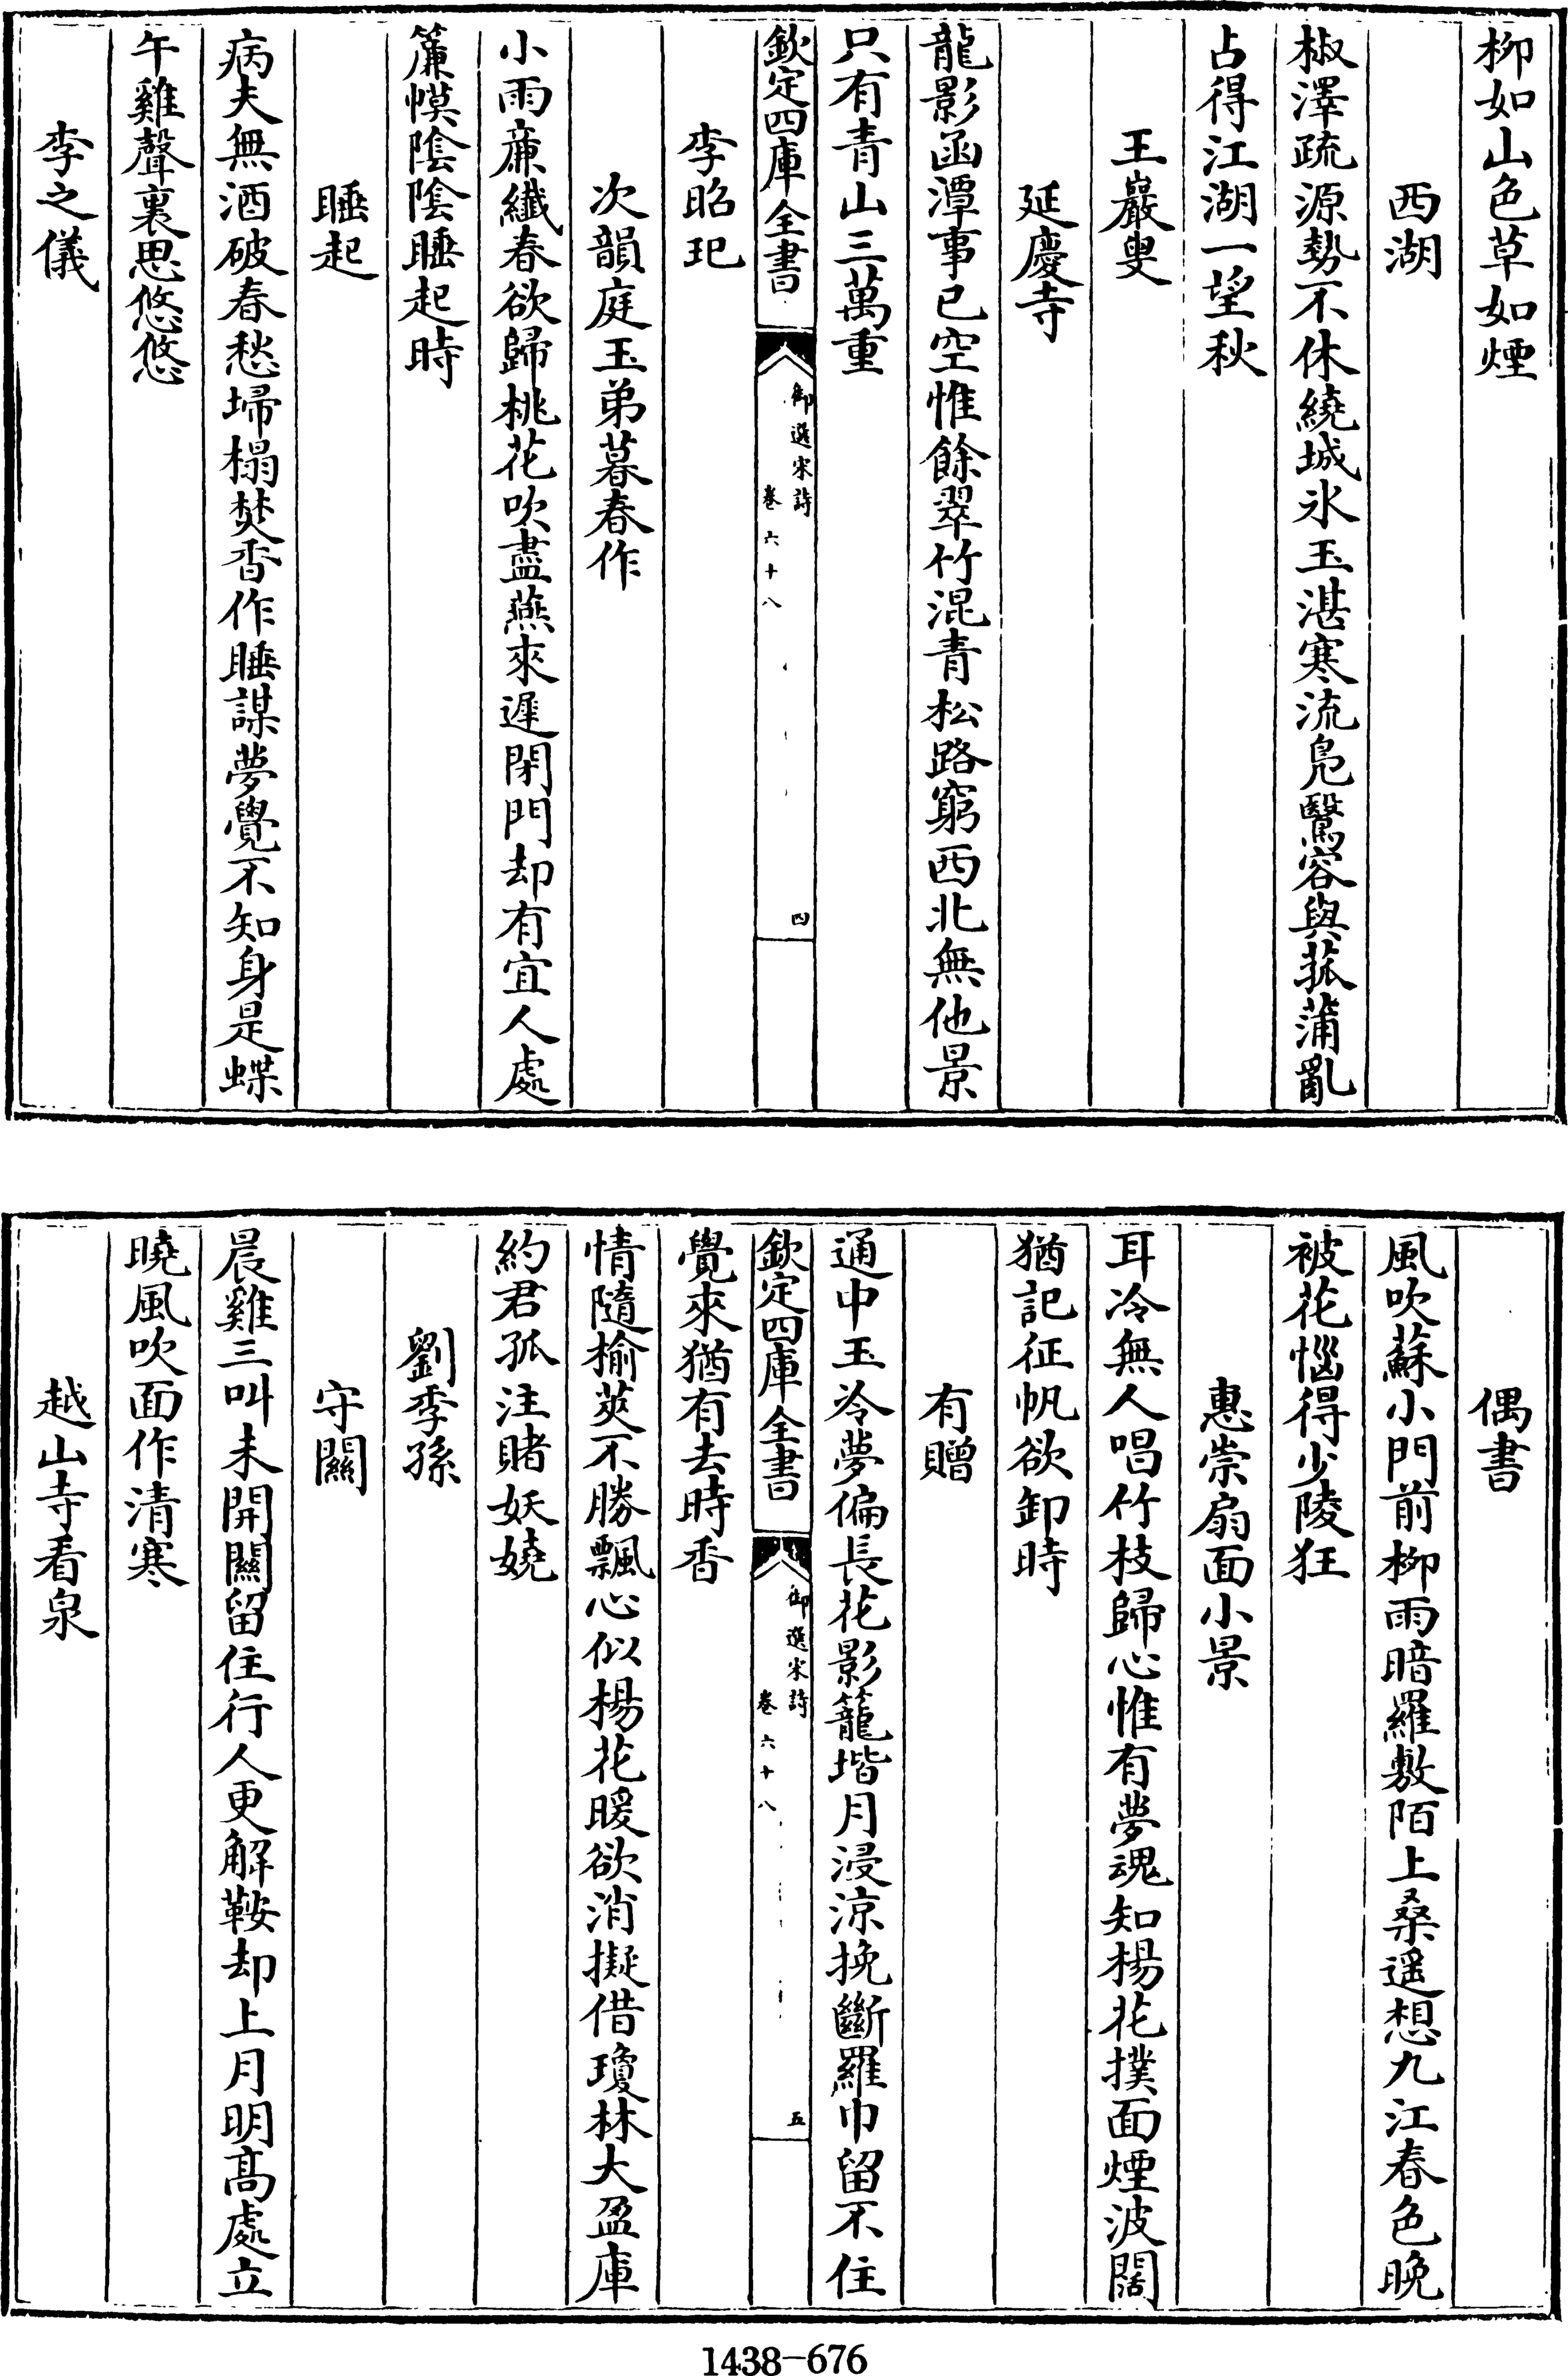 柳如山色草如煙
西湖
椒澤疏源勢不休繞城氷玉湛寒流鳧鷖容與菰蒲亂
占得江湖一望秋
王巖叟
延慶寺
龍影函潭事已空惟餘翠竹混青松路窮西北無他景
只有青山三萬重
欽定四庫全書
御選宋詩
卷六十八
四
李昭玘
次韻庭玉弟暮春作
小雨亷纖春欲歸桃花吹盡燕來遲閉門却有宜人處
簾幙陰陰睡起時
睡起
病夫無酒破春愁埽榻焚香作睡謀夢覺不知身是蝶
午雞聲裏思悠悠
李之儀
偶書
風吹蘇小門前柳雨暗羅敷陌上桑遥想九江春色晚
被花惱得少陵狂
惠崇扇面小景
耳冷無人唱竹枝歸心惟有夢魂知楊花撲面煙波闊
猶記征帆欲卸時
有贈
通中玉冷夢偏長花影籠堦月浸涼挽斷羅巾留不住
欽定四庫全書
御選宋詩
卷六十八
五
覺來猶有去時香
情隨榆莢不勝飄心似楊花暖欲消擬借瓊林大盈庫
約君孤注賭妖嬈
劉季孫
守關
晨雞三叫未開關留住行人更解鞍却上月明髙處立
曉風吹面作清寒
越山寺看泉
1438-676